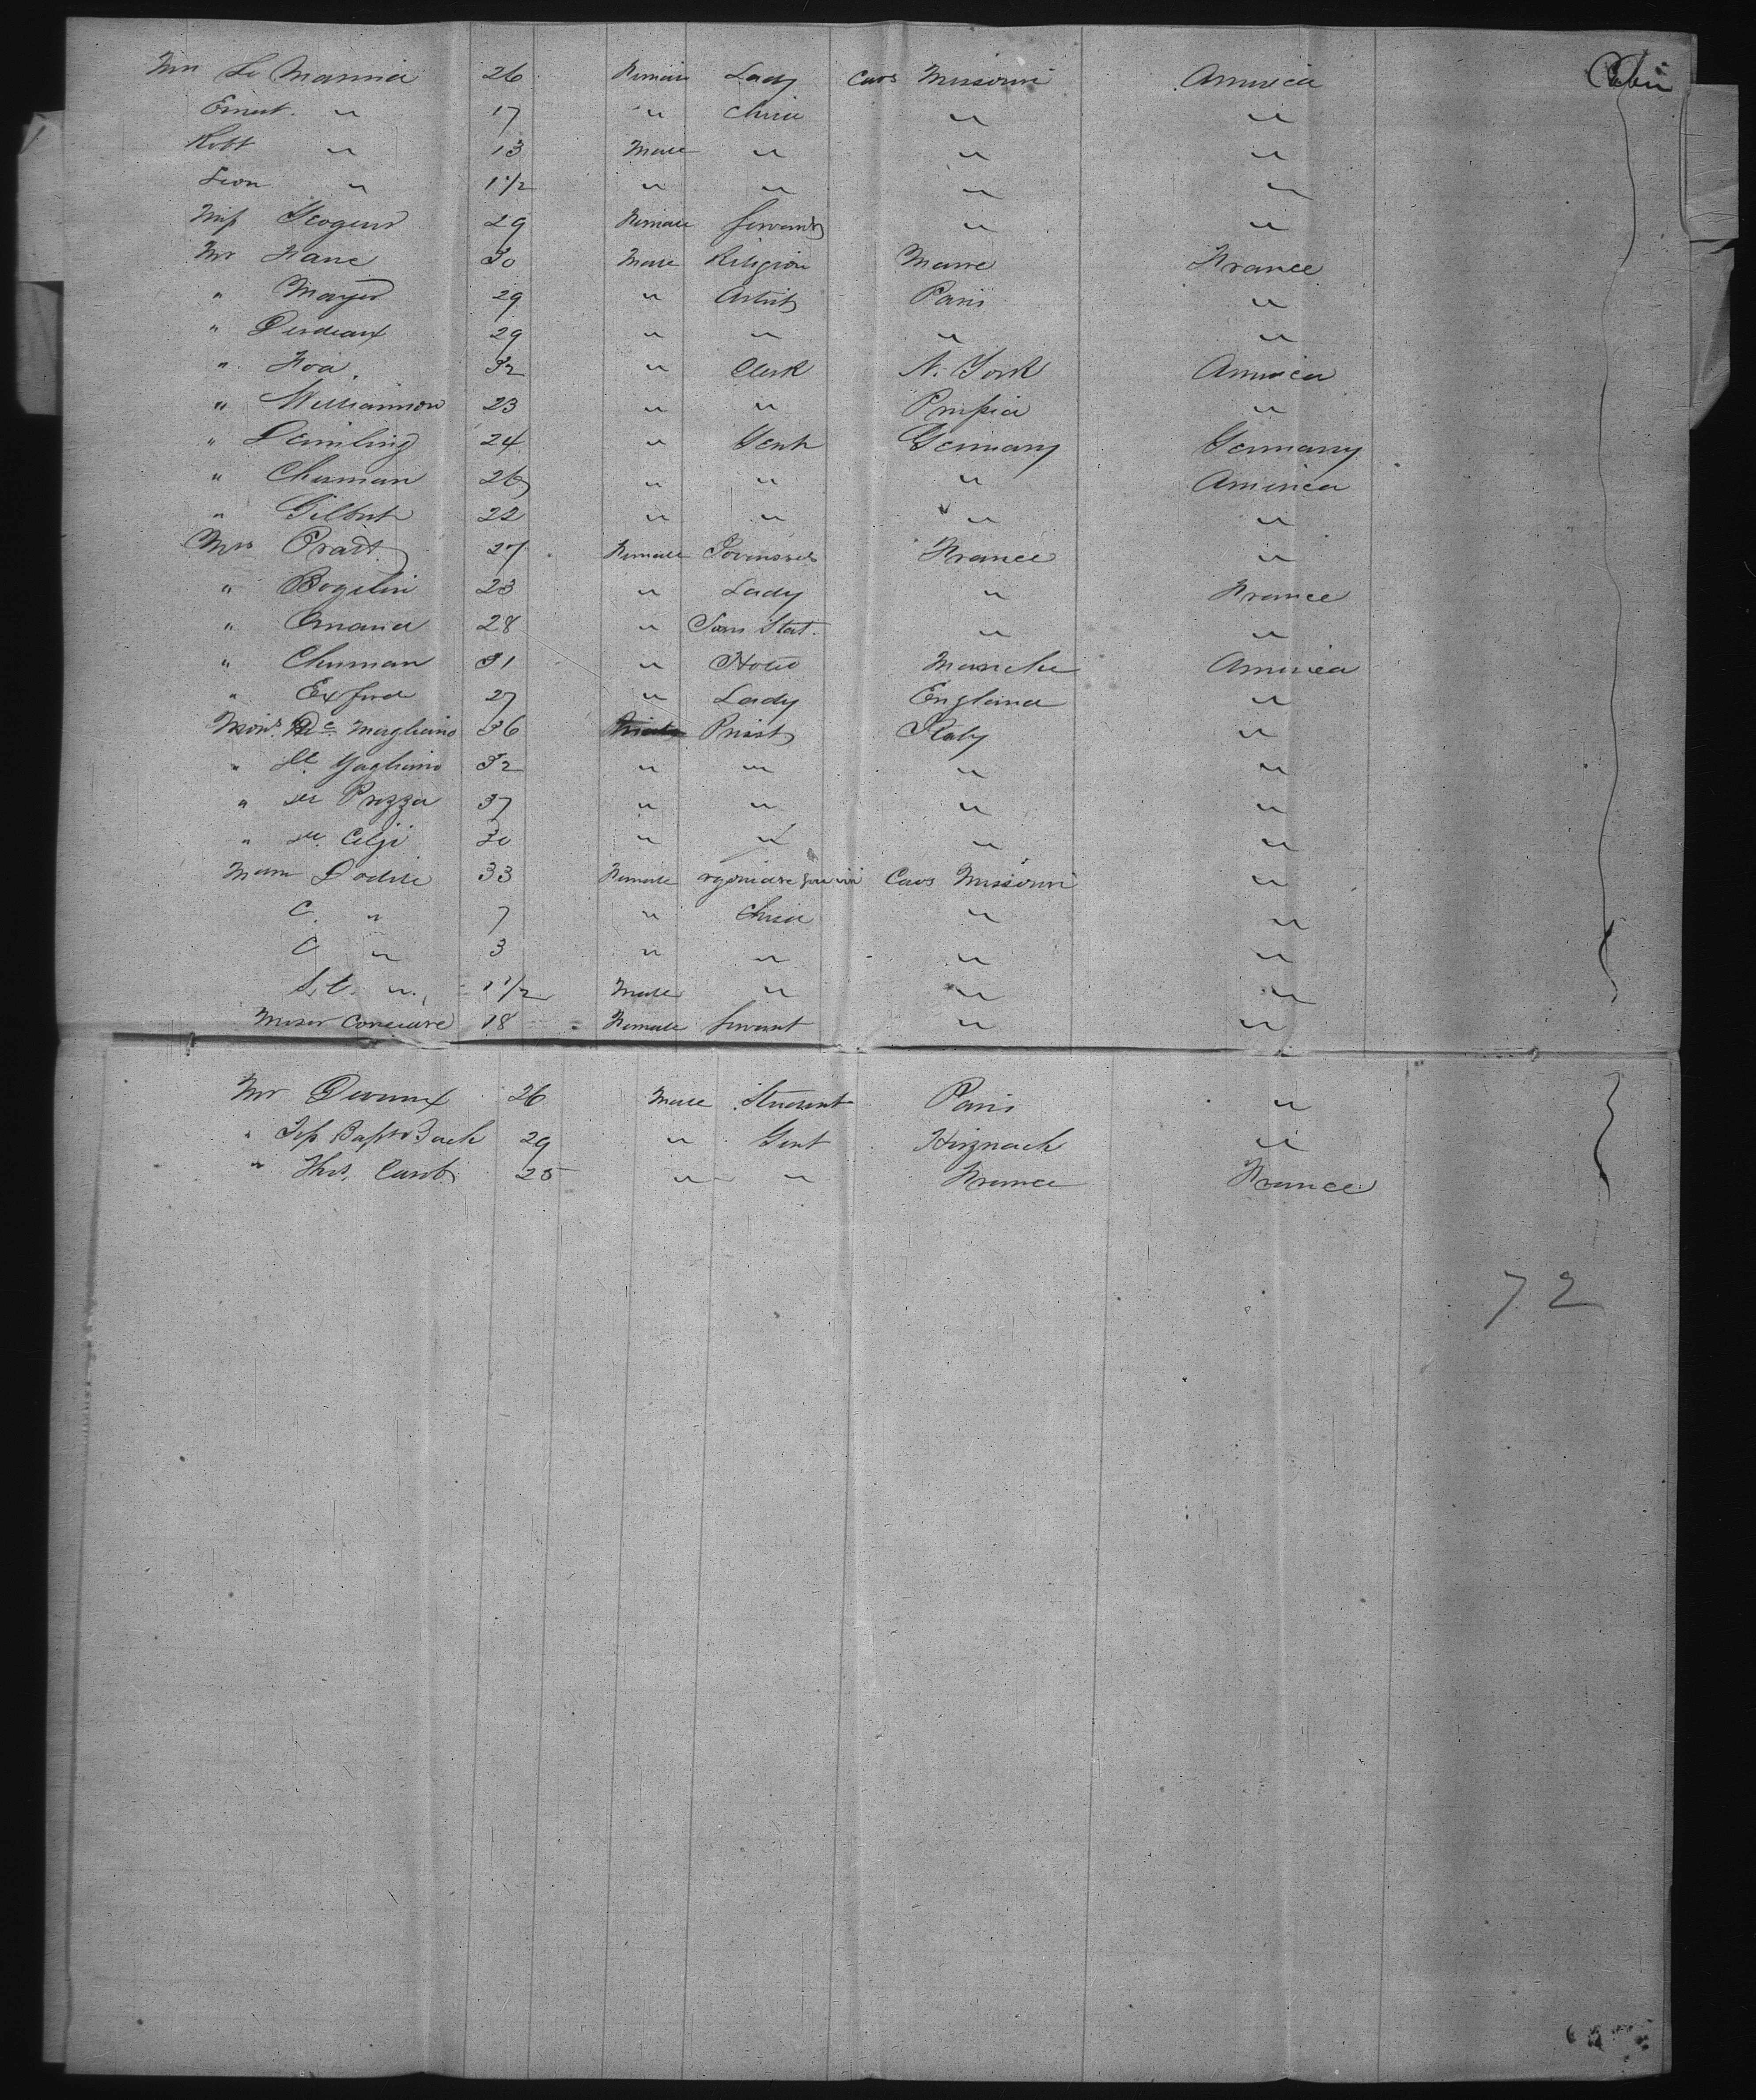 Mrs Le Mannia 26 Female Lady Cavs Missouri America Cabin
Ernest. " 17 " Child " "
Robt " 13 Male " " "
Leon " 1 1/2 " " " "
Miss 29 Female Servant " "
Mr Hane 30 Male Religion France
" Mayer 29 " Artist Paris "
" Durdeaux 29 " " " "
" Hoa. 32 " Clerk N. York America
" Williamson 23 " " Prussia "
" Deimling 24 " Gent Germany Germany
" Churman 26 " " " America
" Gilbert 22 " " " "
Mrs Pratt 27 Female Governess France "
" Bogelin 23 " Lady " France
" Omana 28 " " "
" Churman 31 " America
" Exford 27 " Lady England "
Mons. De Magliano 36 Priest Italy "
" de Gagliano 32 " " " "
" de Prozza 37 " " " "
" de Celji 30 " " " "
Mam Dodile 33 Female Cavs Missouri "
C. " 7 " Child " "
C " 3 " " " "
S.C. " 1 1/2 Male " " "
18 Female Servant " "
Mr Devaux 26 Male Student Paris "
" Jos Bapt Bach 29 " Gent Hirznach "
" Thos. 25 " " France France
72